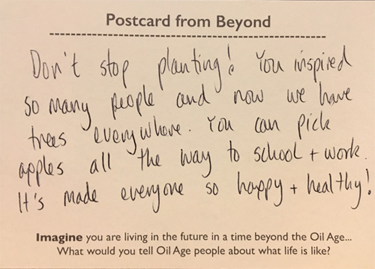 Postcard from Beyond
Don't stop planting! You inspired
so many people and now we have
trees everywhere. You can pick
apples all the way to school + work.
It's made everyone so happy + healthy!
Imagine you are living in the future in a time beyond the Oil Age...
What would you tell Oil Age people about what life is like?